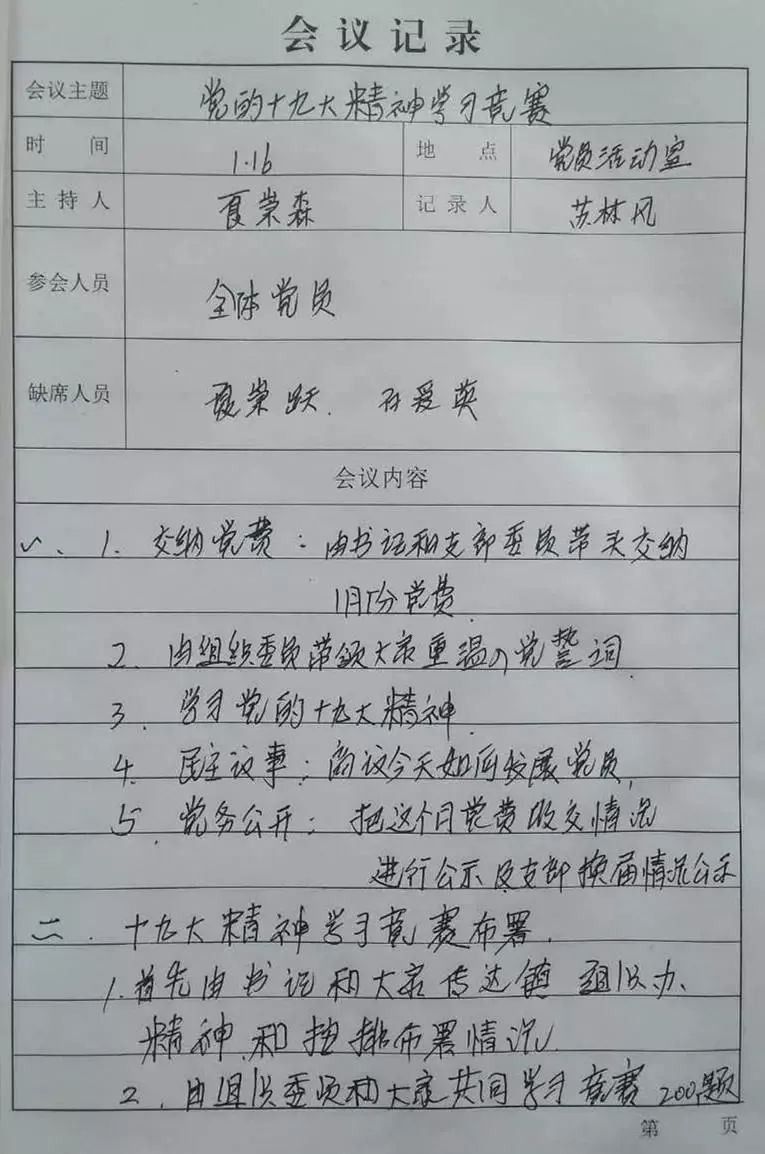 会议记录
会议主题 党的十九大精神学习竞赛
时间 1.16 地点 党员活动室
主持人 夏崇森 记录人 苏林风
参会人员 全体党员
缺席人员 夏崇跃. 孙爱英
会议内容
一、1. 交纳党费：由书记和支部委员带头交纳
1月份党费.
2. 由组织委员带领大家重温入党誓词
3. 学习党的十九大精神.
4. 民主议事：商议今天如何发展党员.
5. 党务公开：把这个月党费收交情况
进行公示及支部换届情况公示
二. 十九大精神学习竞赛布署.
1. 首先由书记和大家传达镇组织办.
精神.和安排布署情况.
2. 由组织委员和大家共同学习竞赛200题
第 页